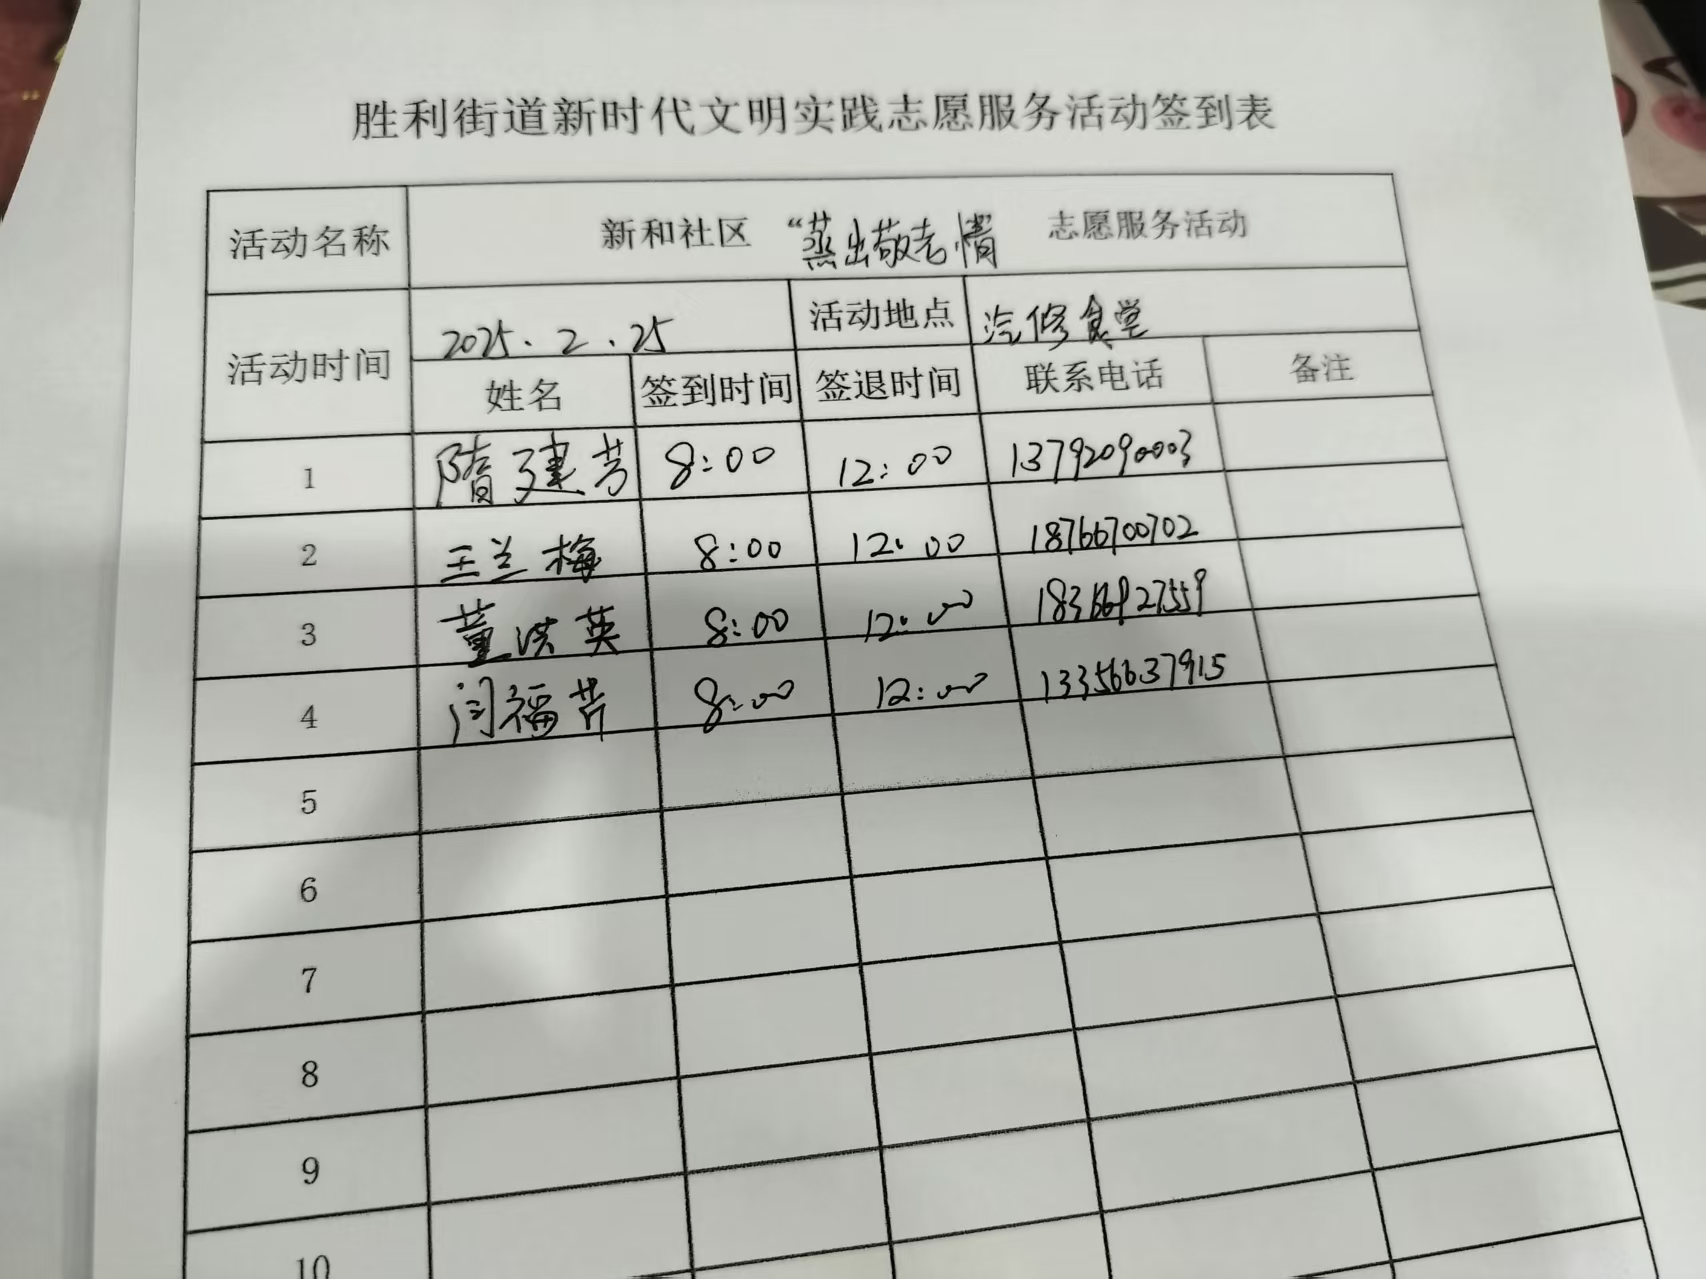 胜利街道新时代文明实践志愿服务活动签到表
活动名称 新和社区 “蒸出敬老情” 志愿服务活动
活动时间 2025.2.25 活动地点 汽修食堂
姓名 签到时间 签退时间 联系电话 备注
1 隋建芳 8:00 12:00 13792090003
2 王兰梅 8:00 12:00 18766700702
3 董洪英 8:00 12:00
4 闫福芹 8:00 12:00 13356637915
5
6
7
8
9
10